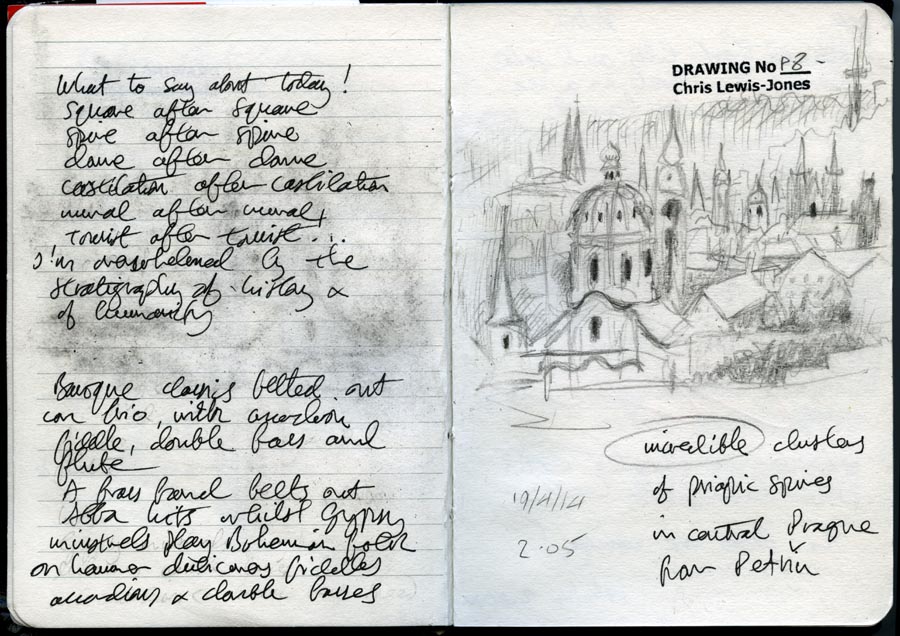 What to say about today!
Square after square
spire after spire
dome after dome
castilation after castilation
mural after mural,
Tourist after tourist!..
I'm overwhelmed by the
stratigraphy of history &
of humanity
Baroque classics belted out
con brio, with accordion,
fiddle, double bass and
flute
A brass band belts out
Abba hits whilst Gypsy
minstrels play Bohemian folk
on hammer dulcimers fiddles
accordions & double basses
DRAWING No P8-
Chris Lewis-Jones
incredible clusters
of priapic spires
in central Prague
from Petřín
19/4/14
2.05